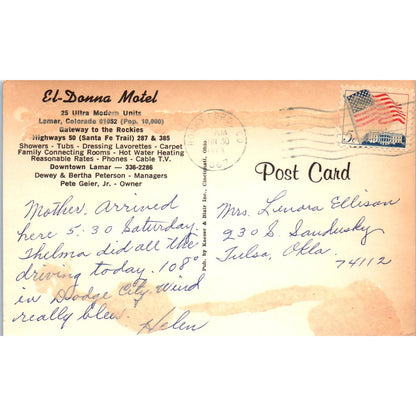 El-Donna Motel
25 Ultra Modern Units
Lamar, Colorado 01052 (Pop. 10,000)
Gateway to the Rockies
Highways 50 (Santa Fe Trail) 287 & 385
Showers - Tubs - Dressing Lavortettes - Carpet
Family Connecting Rooms - Hot Water Heating
Reasonable Rates - Phones - Cable T.V.
Downtown Lamar — 336-2286
Dewey & Bertha Peterson - Managers
Pete Geier, Jr. - Owner
Mother, Arrived
here 5:30 Saturday.
Thelma did all the
driving today. 108°
in Dodge City. Wind
really blew.
Helen
Pub. by Kaeser & Blair Inc., Cincinnati, Ohio
Post Card
Mrs. Lenora Ellison
230 S. Sandusky
Tulsa, Okla.
74112